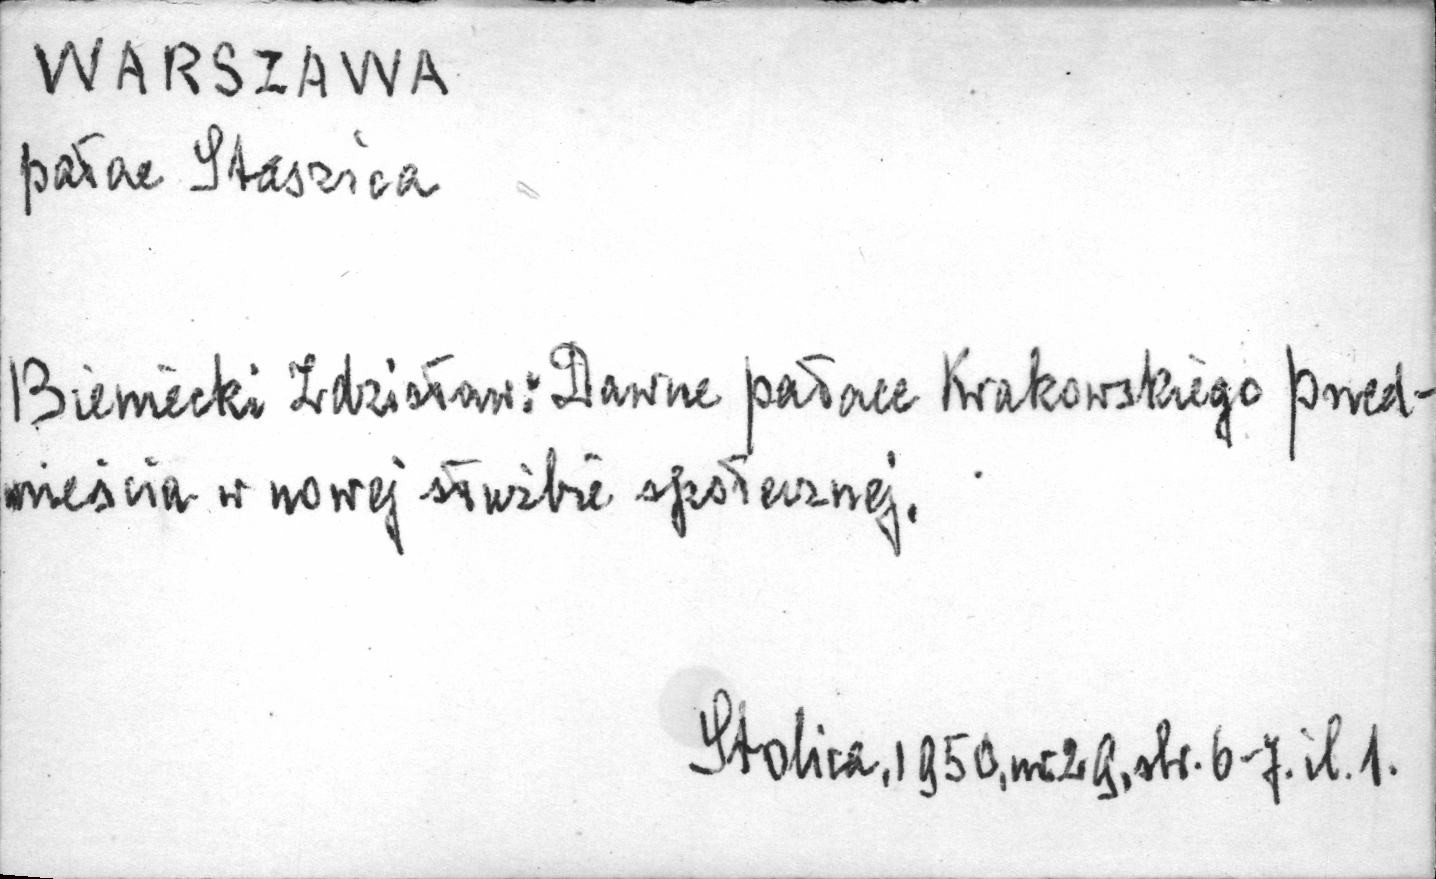 WARSZAWA
pałac Staszica
Bieniecki Zdzisław: Dawne pałace Krakowskiego Przed-
mieścia w nowej służbie społecznej.
Stolica, 1950, nr 29, str. 6-7. il. 1.